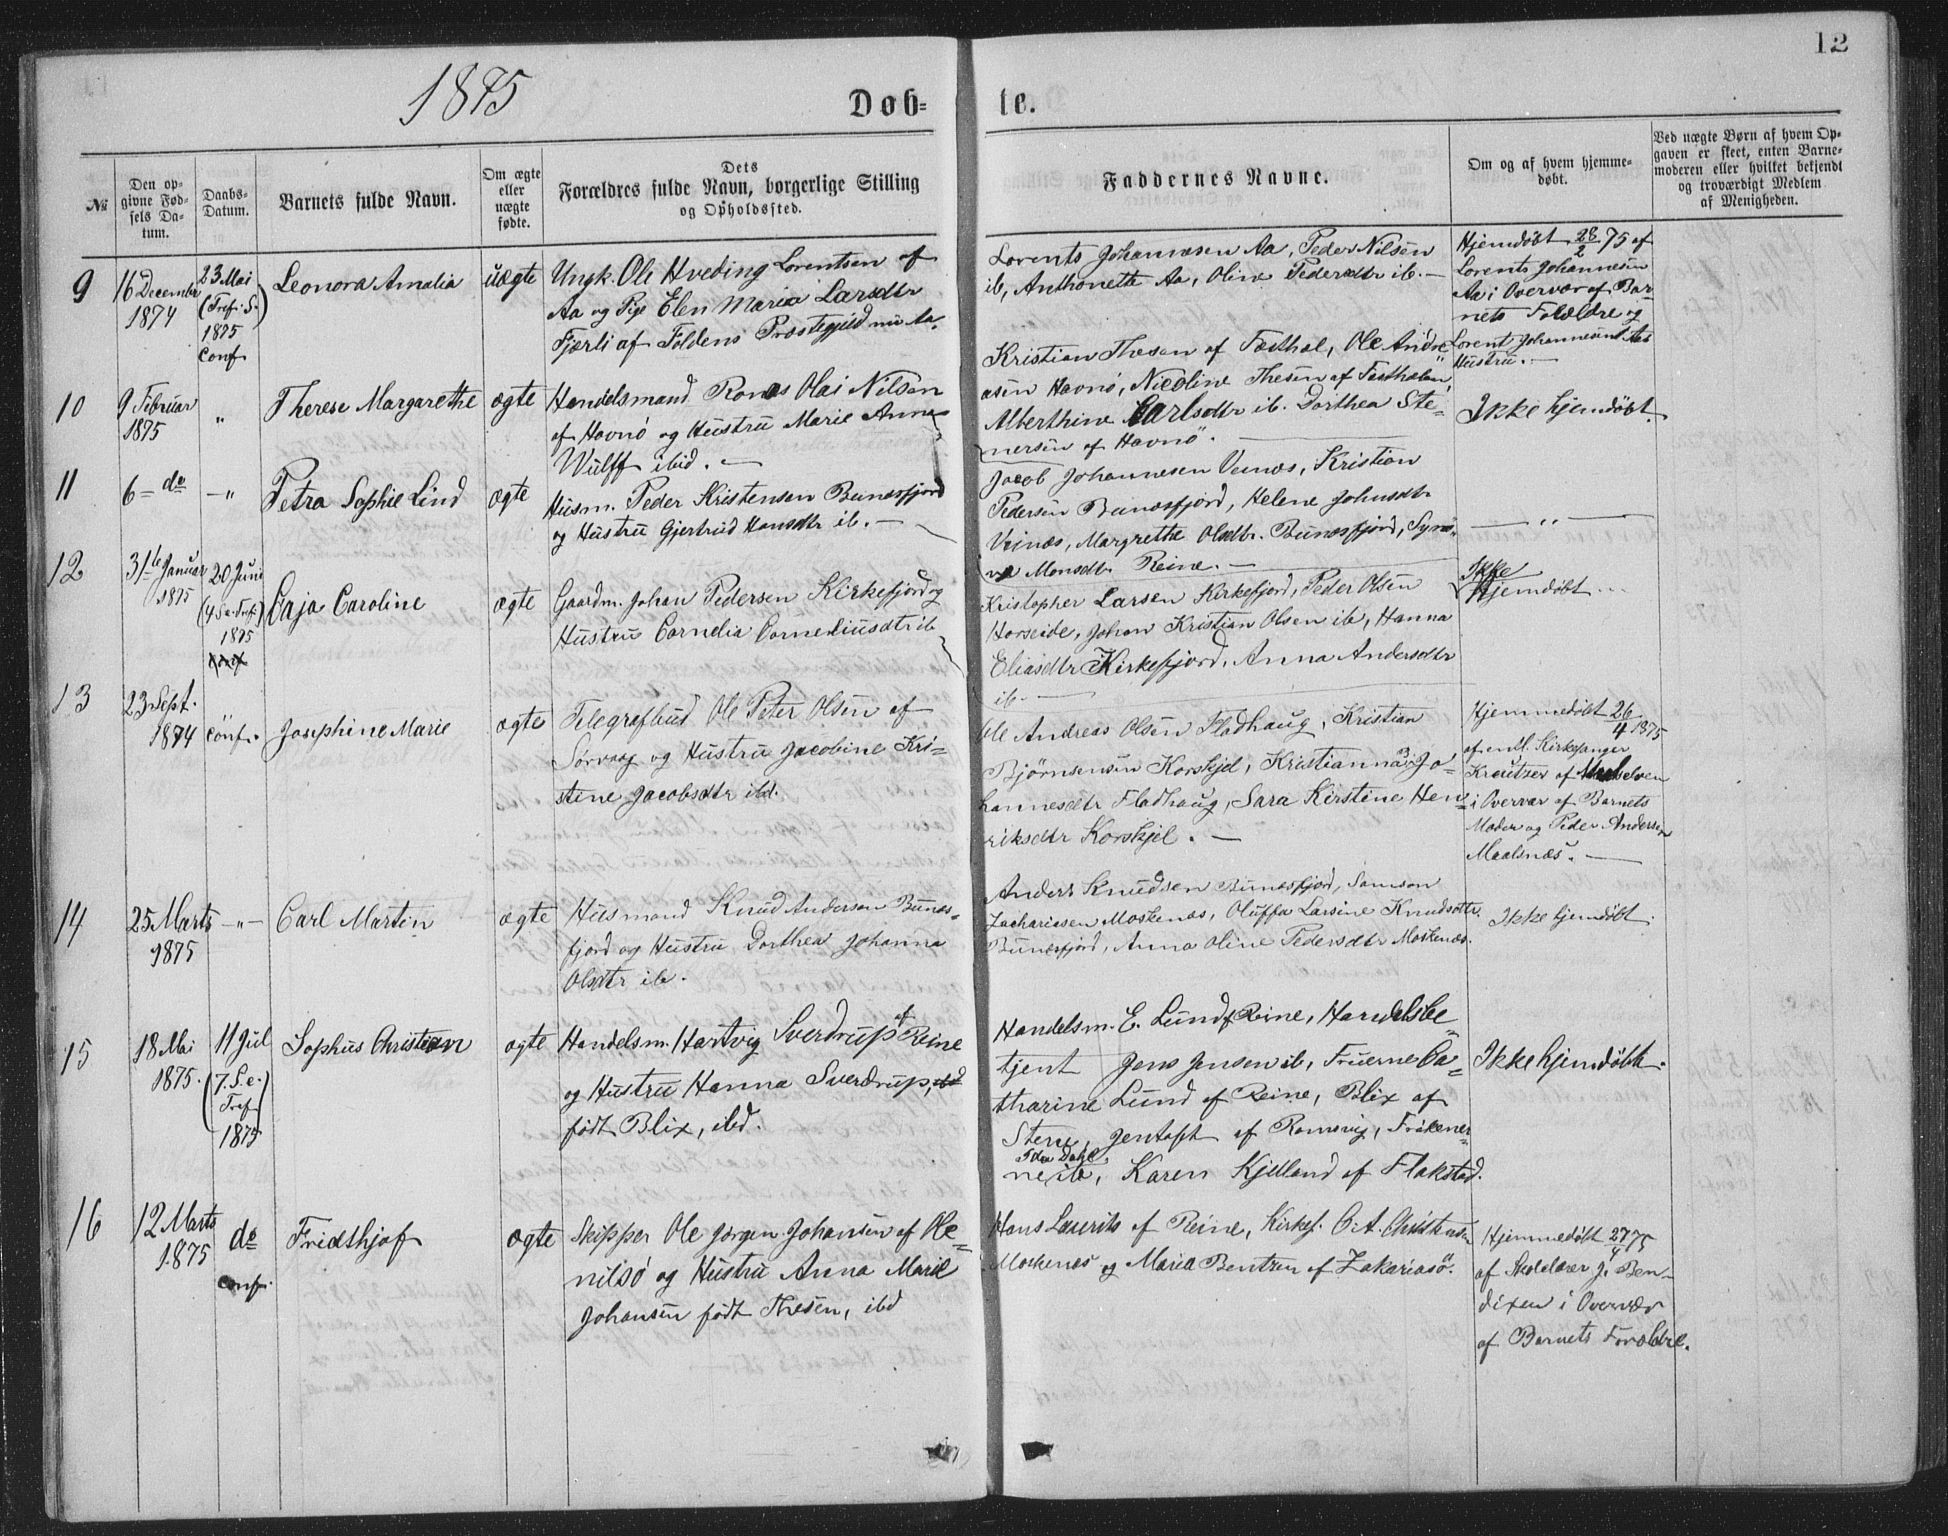 12
1875
Døb=
te.
№
Den op-
givne Fød-
sels Da-
tum.
Daabs-
Datum.
Barnets fulde Navn.
Om ægte
eller
uægte
fødte.
Dets
Forældres fulde Navn, borgerlige Stilling
og Opholdssted.
Faddernes Navne.
Om og af hvem hjemme-
døbt.
Ved uægte Børn af hvem Op-
gaven er skeet, enten Barne-
moderen eller hvilket bekjendt
og troværdigt Medlem
af Menigheden.
9
16 December
1874
23 Mai
(Tref. S.)
1875
conf
Leonora Amalia
uægte
Ungk. Ole Hveding Lorentsen af
Aa og Pige Elen Maria Larsdtr
Fjærli af Foldens Præstegjeld nu Aa.
Lorents Johannesen Aa, Peder Nilsen
ib, Anthonette Aa, Oline Pedersdtr ib. —
Hjemdøbt 28/2 75 af
Lorents Johannesen
Aa i Overvær af Bar-
nets Forældre og
Lorents Johannesens
Hustru. —
10
9 Februar
1875
"
Therese Margarethe
ægte
Handelsmand Ronæs Olai Nilsen
af Havnø og Hustru Marie Anna
Wulff ibid. —
Kristian Thesen af Festhæl, Ole Andre-
asen Havnø, Nicoline Thesen af Festhælen,
Alberthine Carlsdtr ib. Dorthea Ste-
nersen af Havnø.
Ikke hjemdøbt.
11
6 = do
— "
Petra Sophie Lind
ægte
Husm. Peder Kristensen Bunæsfjord
og Hustru Gjertrud Hansdtr ib. —
Jacob Johannesen Veinæs, Kristian
Pedersen Bunæsfjord, Helene Johnsdtr
Veinæs, Margrethe Olsdtr. Bunæsfjord, Synø-
ve Monsdtr Reine. —
— " —
12
31te Januar
1875
20 Juni
(4 S. e. Tref.)
1875
conf
Caja Caroline
ægte
Gaardm. Johan Pedersen Kirkefjord og
Hustru Cornelia Corneliusdtr ib
Kristopher Larsen Kirkefjord, Peder Olsen
Horseide, Johan Kristian Olsen ib, Hanna
Eliasdtr Kirkefjord, Anna Andersdtr
ib. —
Ikke
Hjemdøbt
13
23 Sept.
1874
conf.
Josephine Marie
ægte
Telegrafbud Ole Peter Olsen af
Sørvaag og Hustru Jacobine Kri-
stine Jacobsdtr ibd.
Ole Andreas Olsen Fladhaug, Kristian
Bjørnsensen Korshjel, Kristianna Jo-
hannesdtr Fladhaug, Sara Kirstine Hen-
riksdtr Korshjel. —
Hjemmedøbt 26/4 1875
af Kirkesanger
Kreutzer af Maalselven
i Overvær af Barnets
Moder og Peder Andersen
Maalsnæs. —
14
25 Marts
1875
— " —
Carl Martin
ægte
Husmand Knud Andersen Bunæs-
fjord og Hustru Dorthea Johanna
Olsdtr ib.
Anders Knudsen Bunæsfjord, Samson
Zachariesen Moskenæs, Oluffa Larsine Knudsdtr.
Bunæsfjord, Anna Oline Pedersdtr Moskenæs.
Ikke hjemdøbt.
15
18 Mai
1875.
11 Jul
(7. S. e.
Tref)
1875
Sophus Christian
ægte
Handelsm. Hartvig Sverdrup af Reine
og Hustru Hanna Sverdrup, ibd
født Blix, ibd.
Handelsm. E. Lund af Reine, Handelsbe-
tjent Jens Jensen ib, Fruerne Ca-
tharine Lund af Reine, Blix af
Steen, Jentoft af Ramsvig, Frøkener-
ne Ida Dahl ib, Karen Kjelland af Flakstad.
Ikke hjemdøbt.
16
12 Marts
1875
do
conf.
Fridthjof
ægte
Skipper Ole Jørgen Johansen af Ole-
nilsø og Hustru Anna Marie
Johansen født Thesen, ibd
Hans Laurits af Reine, Kirkes. O. A. Christensen
Moskenæs og Maria Bentzen af Zakariasø.
Hjemmedøbt 27/4 75
af Skolelærer J. Ben-
dixen i Overvær
af Barnets Forældre.